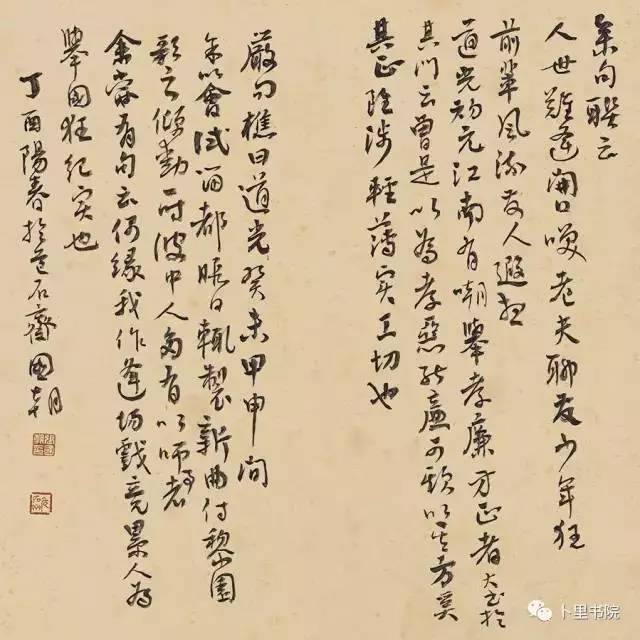 集句聯云
人世難逢開口笑老夫聊發少年狂
前輩風流發人遐想
道光初元江南有嘲舉孝廉方正者大書於
其門云曾是以為孝惡能廉可欺以其方奚
其正雖涉輕薄實工切也
嚴問樵曰道光癸未甲申間
余以會試留都暇日輒製新曲付黎園
歌之傾動一時彼中人多有以師者
余嘗有句云何緣我作逢場戲竟累人為
舉國狂紀實也
丁酉陽春於石齋國
卜里书院